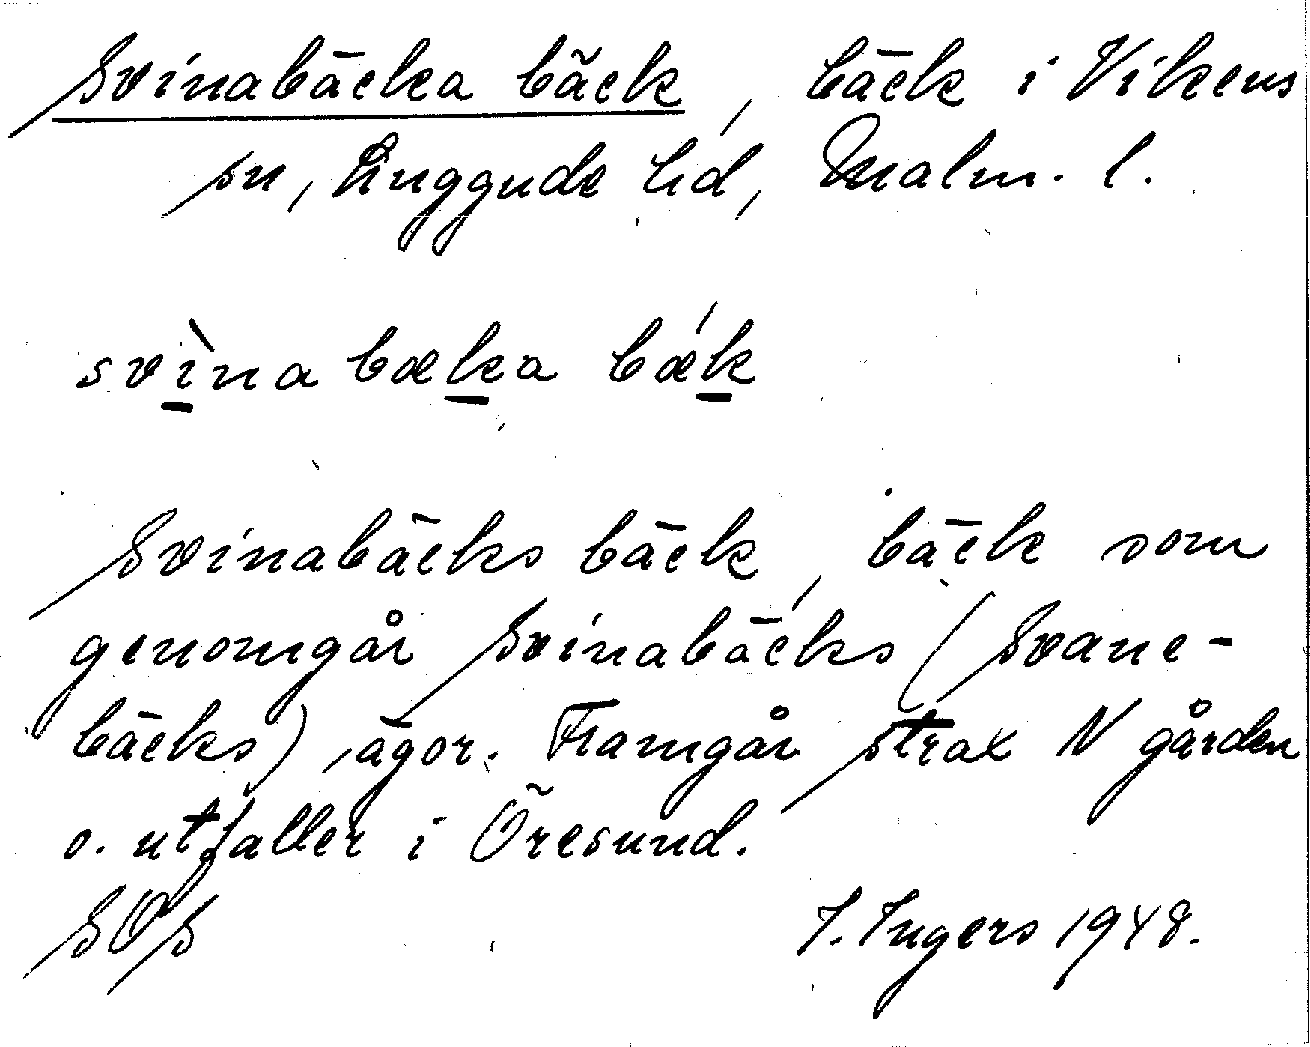 Svinabäcka bäck, bäck i Vikens
sn, Luggude hd, Malm. l.
svìna bæka bǽk
Svinabäcks bäck, bäck som
genomgår Svinabäcks (Svane-
bäcks) ägor. Framgår strax N gården
o. utfaller i Öresund.
SOS
I. Ingers 1948.